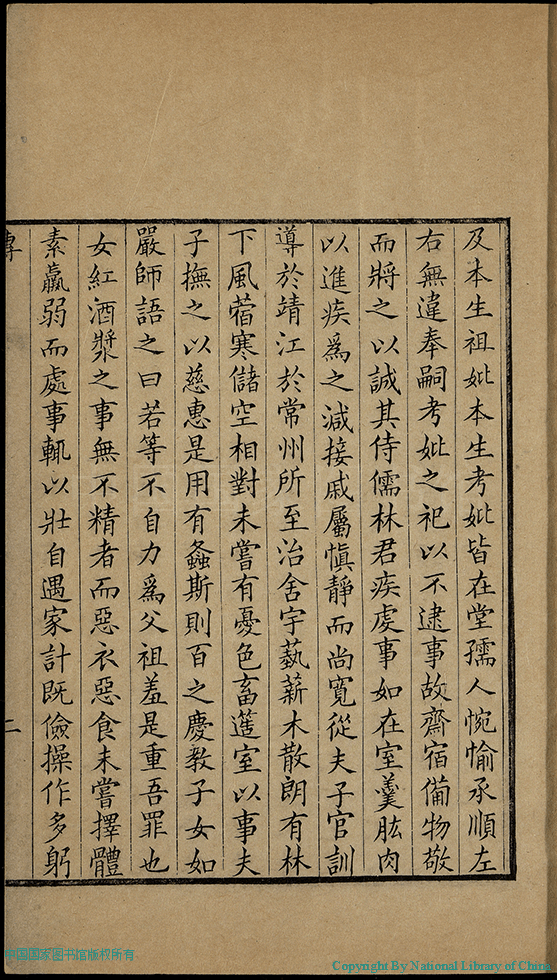 及本生祖妣本生考妣皆在堂孺人惋愉承順左
右無違奉嗣考妣之祀以不逮事故齋宿備物敬
而將之以誠其侍儒林君疾虔事如在室羹肱肉
以進疾爲之減接戚屬愼靜而尚寬從夫子官訓
導於靖江於常州所至治舍宇蓺薪木散朗有林
下風蓄寒儲空相對未嘗有憂色畜簉室以事夫
子撫之以慈惠是用有螽斯則百之慶教子女如
嚴師語之曰若等不自力爲父祖羞是重吾罪也
女紅酒漿之事無不精者而惡衣惡食未嘗擇體
素羸弱而處事輒以壯自遇家計既儉操作多躬
二
中国国家图书馆版权所有
Copyright By National Library of China